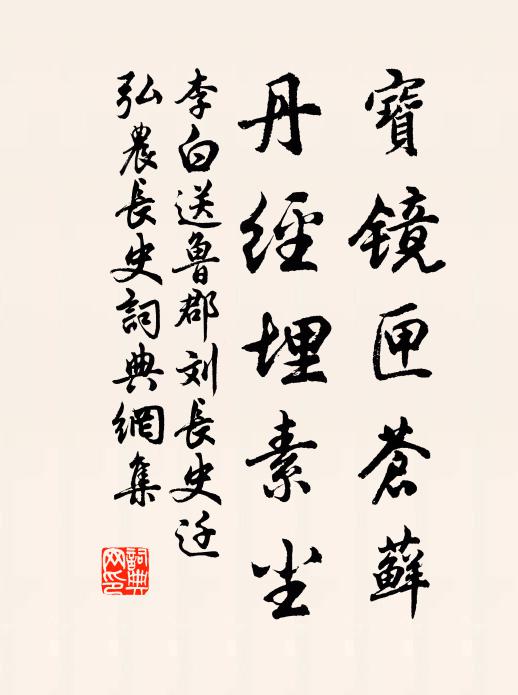 寶鏡匣蒼蘚
丹經埋素尘
李白送鲁郡刘長史迁
弘農長史詞典網集
詞典网印